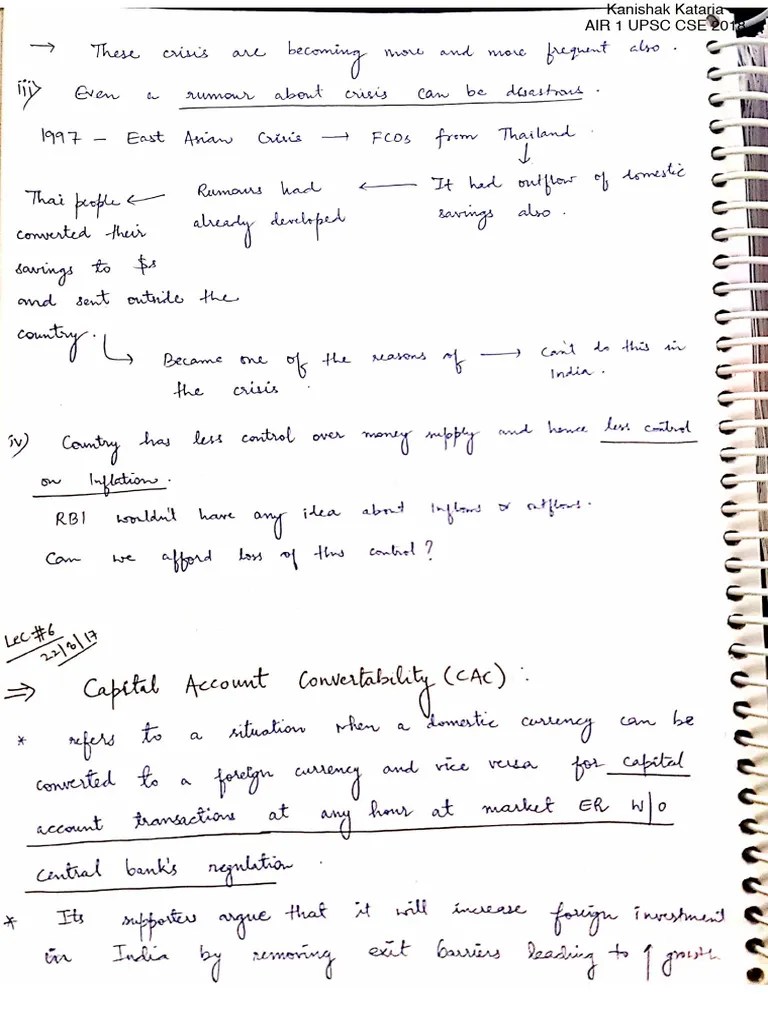 Kanishak Kataria
AIR 1 UPSC CSE 2018
→ These crisis are becoming more and more frequent also.
iii) Even a rumour about crisis can be desastrous.
1997 - East Asian Crisis → FCOs from Thailand.
↓
It had outflow of domestic
savings also.
← Rumours had
already developed
← Thai people
converted their
savings to $s
and sent outside the
country.
↳ Became one of the reasons of
the crisis.
→ can't do this in
India.
iv) Country has less control over money supply and hence less control
on Inflation.
RBI wouldn't have any idea about inflows or outflows.
Can we afford loss of this control?
Lec #6
22/8/17
⇒ Capital Account Convertability (CAC):
* refers to a situation when a domestic currency can be
converted to a foreign currency and vice versa for capital
account transactions at any hour at market ER w/o
central bank's regulation.
* Its supporters argue that it will increase foreign investment
in India by removing exit barriers leading to ↑ growth